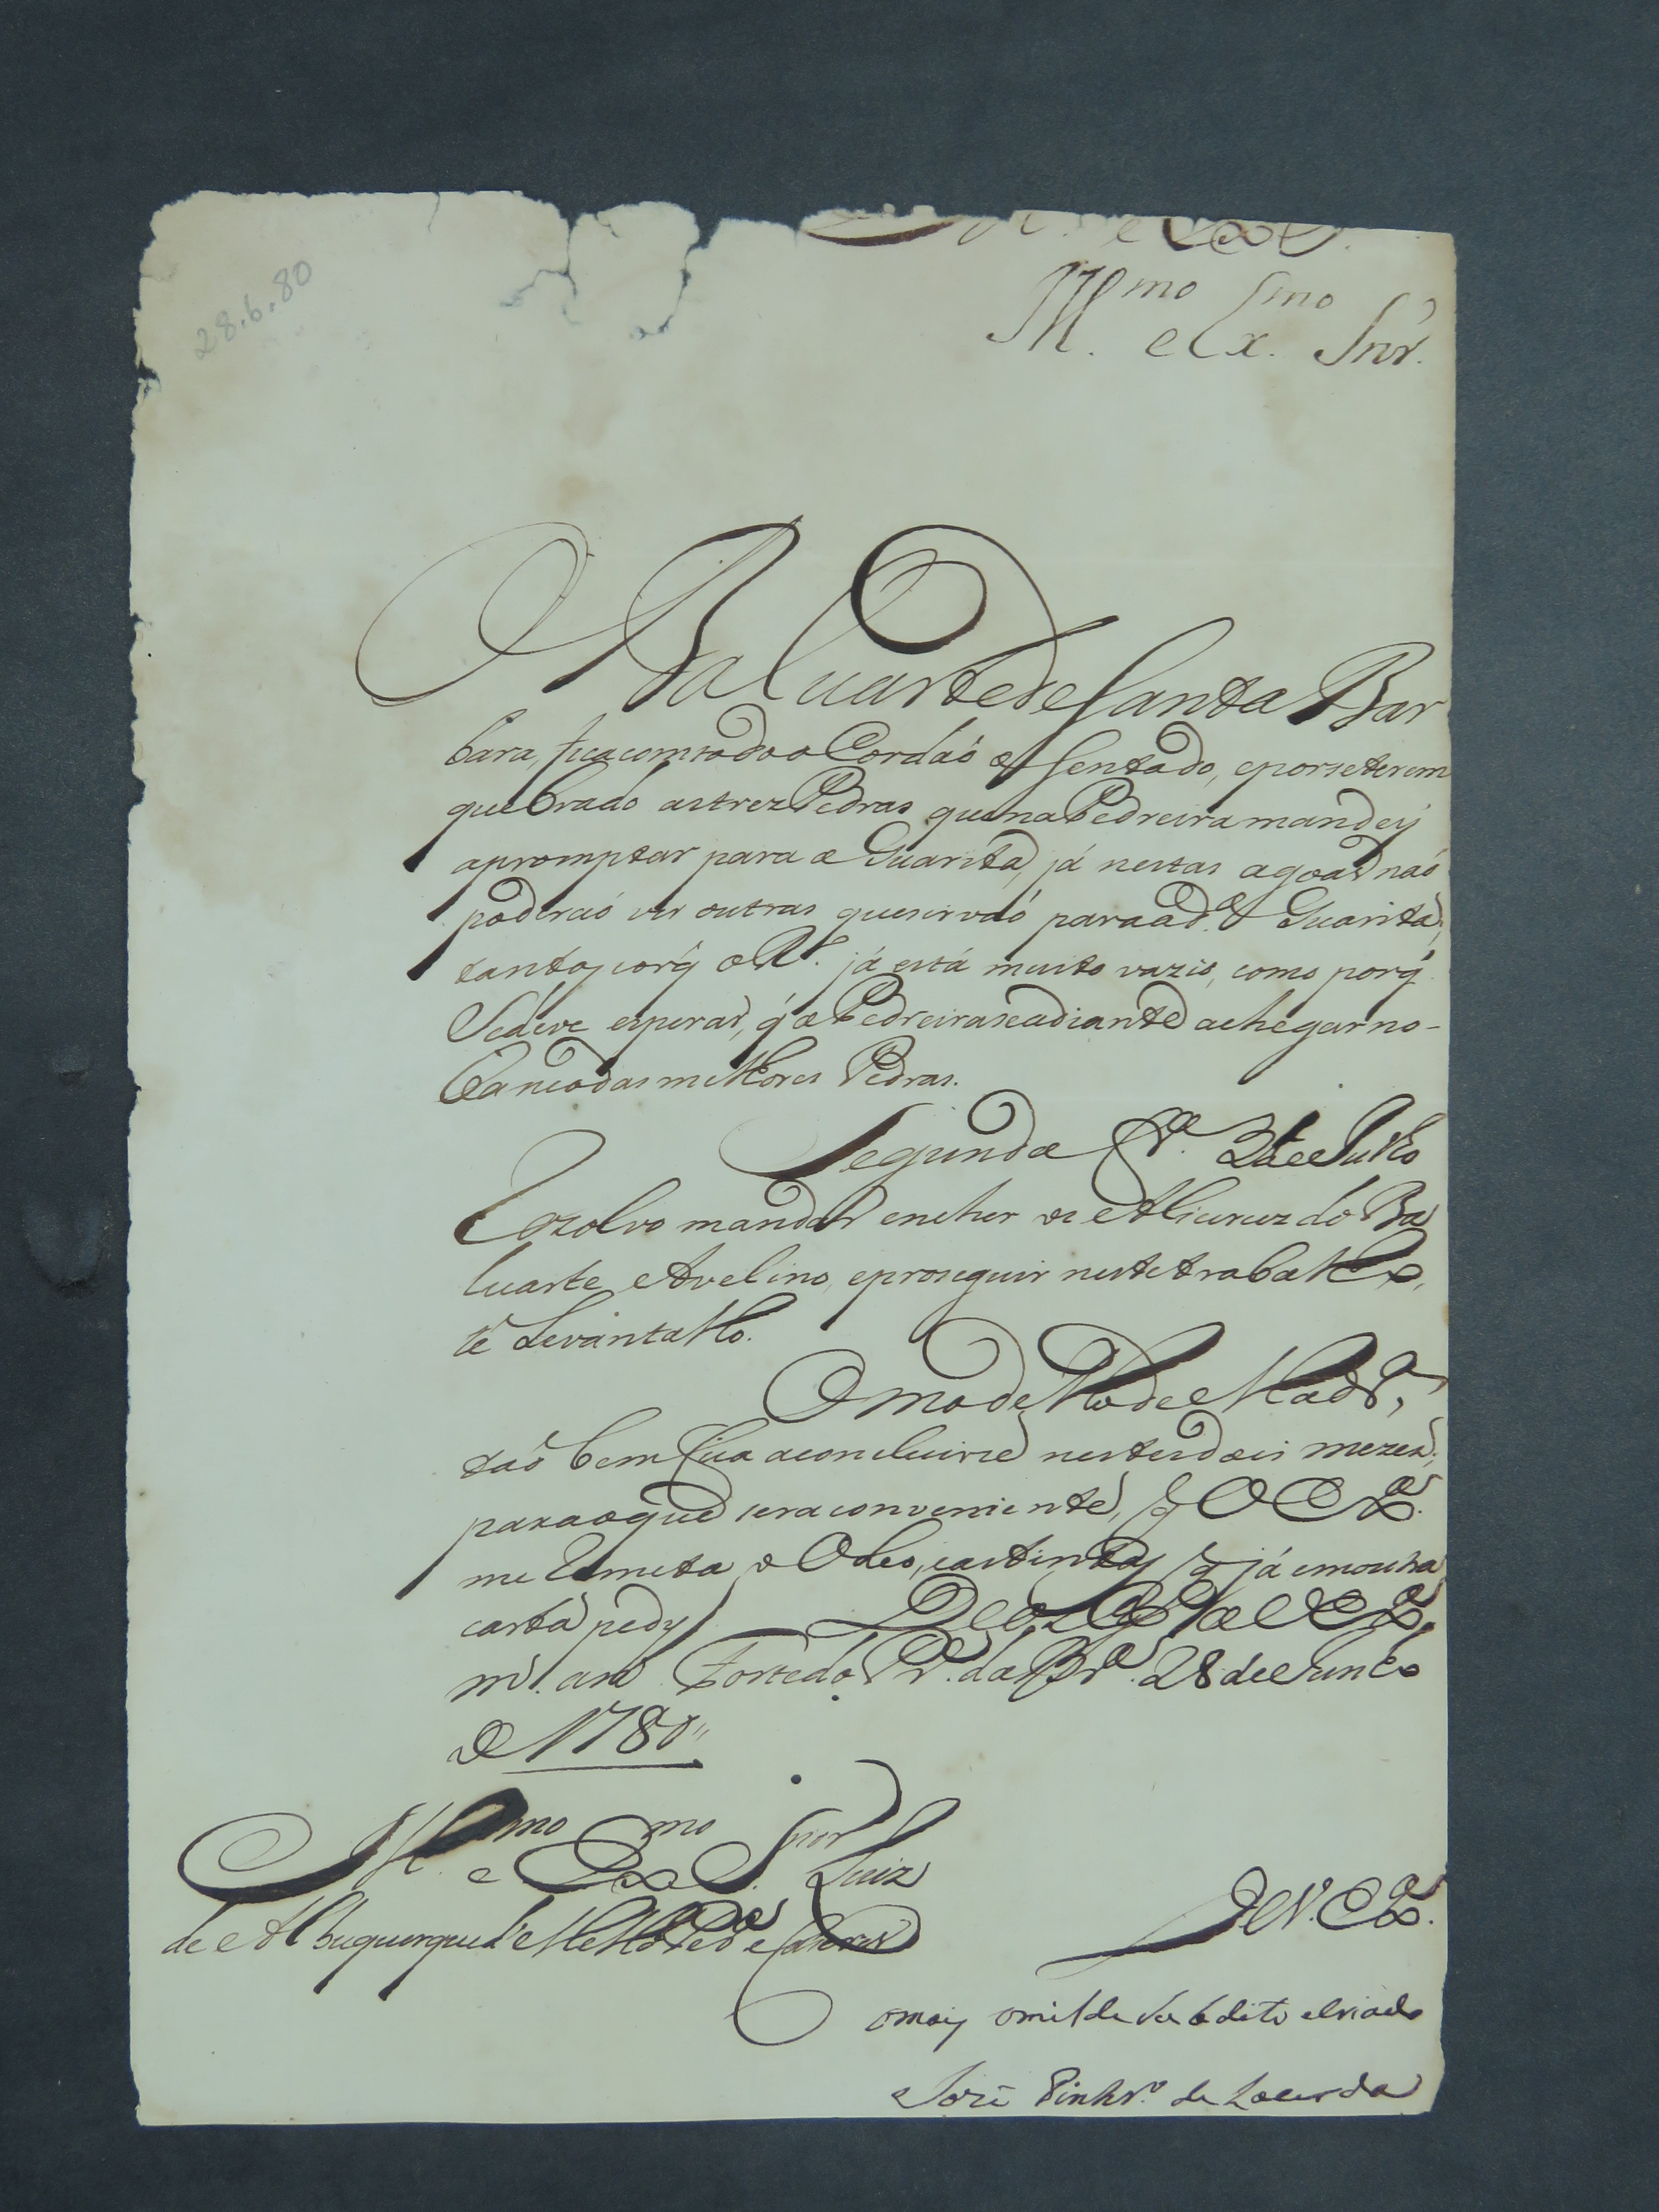 28.6.80
Ill.mo e Ex.mo Snr.
O Baluarte de Santa Bar
bara, fica com todo o Cordaõ asentado, e por se terem
quebrado as trez Pedras que na Pedreira mandey
apromptar para a Guarita, já nestas agoas naõ
poderáó vir outras que sirvaó para a d.ª Guarita,
tanto porq̃ o R.º já está muito vazio, como porq̃
Se deve esperar, q̃ a Pedreira se adiante a chegar no-
banco das melhores Pedras.
Segunda fr.ª 3 de Julho
Rezolvo mandar encher os Alicerces do Ba
luarte Avelino, e proseguir neste trabalho,
té Levantallo.
O modello de Madr.ª,
taõ bem fica a concluirse nestes dois mezes,
para o que será conveniente, q̃ V Ex.ª
me Remeta o Oleo, e as tintas q̃ já em outra
carta pedy. Deoz G.de a V Ex.ª
m.s an.s Forte do Pr.e da Br.ª 28 de Junho
de 1780
Ill.mo e Ex.mo Snor Luiz
de Albuquerque de Mello Per.ª e Caceres
De V. Ex.ª
o mais omilde subdito e criado
Jozé Pinhr.º de Lacerda